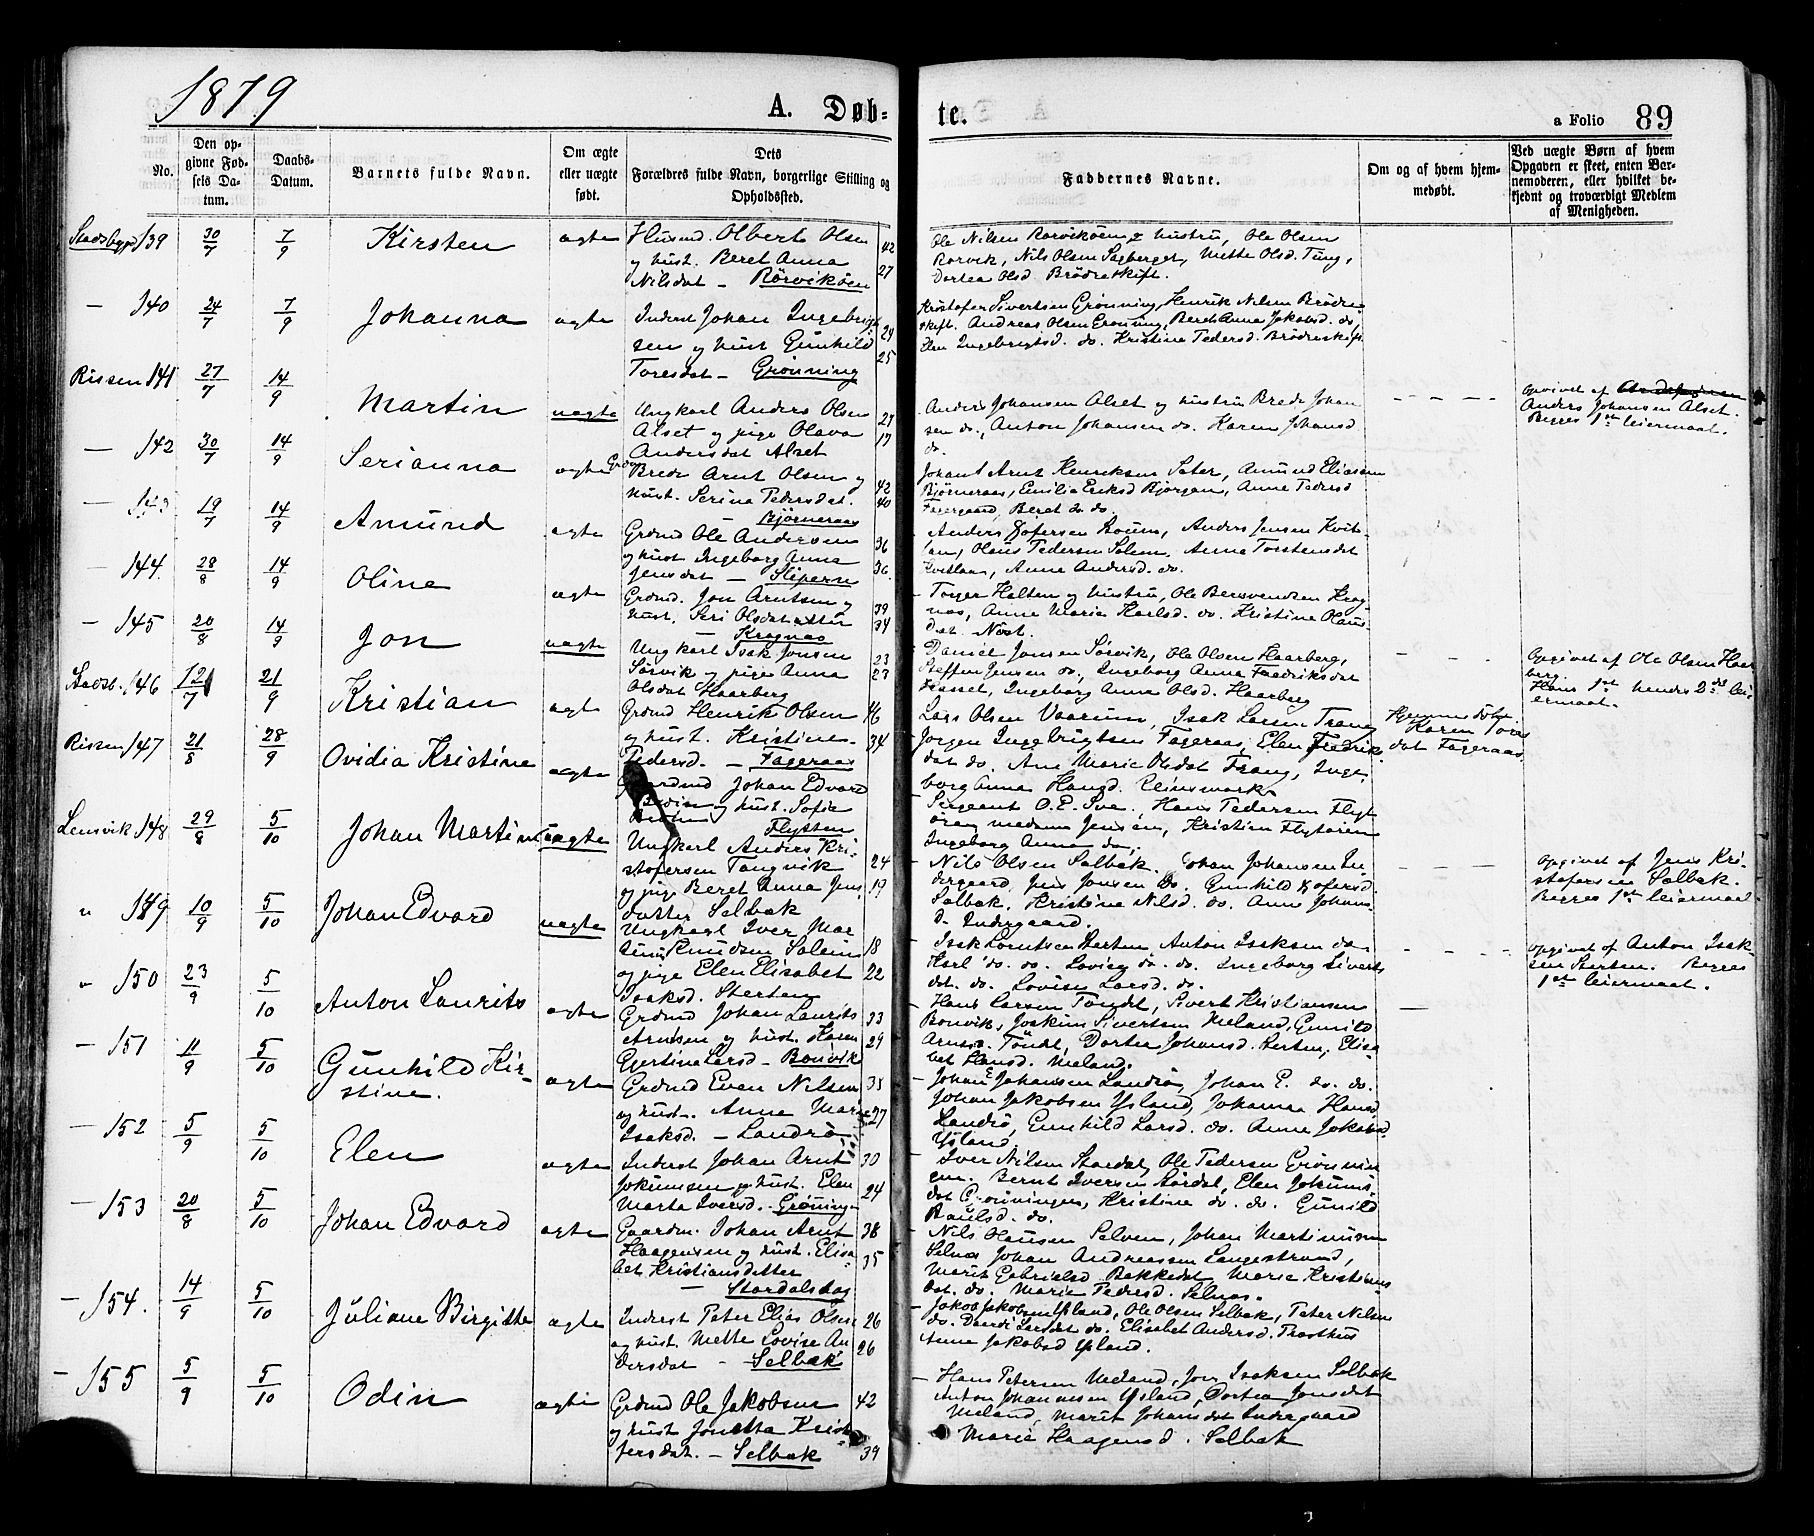 1879
A. Døb-
te.
a Folio 89
No.
Den op-
givne Fød-
sels Da-
tum.
Daabs-
Datum.
Barnets fulde Navn.
Om ægte
eller uægte
født.
Dets
Forældres fulde Navn, borgerlige Stilling og
Opholdssted.
Faddernes Navne.
Om og af hvem hjem-
medøbt.
Ved uægte Børn af hvem
Opgaven er skeet, enten Bar-
nemoderen, eller hvilket be-
kjendt og troværdigt Medlem
af Menigheden.
Stadsbygd 139 30/7 7/9 Kirsten ægte
Husmd. Olbert Olsen 42
og hust. Beret Anna 27
Nilsdat - Rørvikøen
Ole Nilsen Rørvikøen & hustru, Ole Olsen
Rørvik, Nils Olsen Sagberget, Mette Olsd. Tung,
Dortea Olsd. Brødreskift.
- 140 24/7 7/9 Johanna ægte
Inderst Johan Ingebrigt-
sen og hust Gunhild 29
Toresdat - Grønning 25
Kristofer Sivertsen Grønning, Henrik Nilsen Brødre-
skift. Andreas Olsen Grønning, Beret Anna Jakobsd. do,
Elen Ingebrigtsd. do. Kristine Pedersd. Brødreskift
Rissen 141 27/7 14/9 Martin uægte
Ungkarl Anders Olsen 27
Alset og pige Olava 17
Andersdat Alset
Anders Johansen Alset og hustru Brede Johan
sen do., Anton Johansen do. Karen Johansd
do.
Opgivet af
Anders Johansen Alset.
Begges 1ste leiermaal.
- 142 30/7 14/9 Serianna ægte
Brede Arnt Olsen og 42
hust. Serina Pedersdat. 40
- Bjørneraas
Johan Arnt Henriksen Sæter, Amund Eliasen
Bjørneraas, Emilie Eriksd Bjørgan, Anne Pedersd
Fagergaard, Beret do do.
- 143 19/7 14/9 Amund ægte
Grdmd Ole Andersen 36
og hust Ingeborg Anna 36.
Jensdat - Slipern
Anders Jensen Kvit-
Olaus Pedersen Solem, Anna Torstensdat
Anne Andersd. do.
- 144. 28/8 14/9 Oline ægte
Grdmd. Jon Arntsen og 39
hust. Seri Olsdatter 34
Kragnæs
Torger Halten og hustru, Ole Bersvendsen Krag-
næs, Anne Maria Karlsd. do. Kristine Olaus-
dat. Nøst.
- 145 20/8 14/9 Jon uægte
Ungkarl Isak Jonsen 23
Sørvik og pige Anna 23
Olsdat Haarberg
Daniel Jonsen Sørvik, Ole Olsen Haarberg,
Steffen Jensen do, Ingeborg Anna Fredriksdat
Hasset, Ingeborg Anna Olsd. Haarberg
Opgivet af Ole Olsen Haar
berg.
Hans 1ste hendes 2det lei-
ermaal.
Stadsb. 146 12/7 21/9 Kristian ægte
Grdmd Henrik Olsen 46
og hust. Kristine 34
Pedersd. - Fageraas
Lars Olsen Vaarum, Isak Larsen Trang
Jørgen Ingebrigtsen Fageraas, Elen Fredrik-
dat do. Ane Marie Olsdat Trang, Inge-
borg Anna Hansd. Reinsmark
Hjemmedøbt
Karen Tores
dat Fageraas
Rissen 147 21/8 28/9 Ovidia Kristine ægte
Gaardmd Johan Edvard
og hust. Sofie
Flytten
Sergeant O. E. Sve, Hans Pedersen Flyt
øren, madame Jensen, Kristian Flytøren
Ingeborg Anna do,
Lensvik 148 29/8 5/10 Johan Martin uægte
Ungkarl Anders Kri-
stofersen Tangvik 24
og pige Beret Anna Jens 19
datter Selbæk
Nils Olsen Selbæk. Johan Johansen In-
dergaard, Jens Jonsen do. Gunhild Kristofersd.
Selbæk. Kristine Nilsd. do. Anne Johans-
d. Indergaard.
Opgivet af Jens Kri-
stofersen Selbæk.
Begges 1ste leiermaal
" 149 10/9 5/10 Johan Edvard uægte
Ungkarl Iver Mar
tinus Knudsen Solem 18
og pige Elen Elisabet 22
Isaksd. Sterten
Isak Lorntsen Sterten Anton Isaksen do
Karl do. do. Lovise do. do. Ingeborg Siverts
dat. do. Lovise Larsd. do.
Opgivet af Anton Isak-
sen Sterten. Begges
1ste leiermaal.
" 150 23/9 5/10 Anton Laurits ægte
Grdmd Johan Laurits 33
Arntsen og hust. Karen 29
Gjertine Larsd - Bonvik
Hans Larsen Tøndt, Sivert Kristiansen
Bonvik, Joakim Sivertsen Meland, Gunild
Arntsd. Tøndt, Dortea Johansd. Sterten, Elisa-
bet Hansd. Meland.
- 151 11/9 5/10 Gunhild Kir-
stine. ægte
Grdmd Even Nilsen 35
og hust. Anne Marie 27
Isaksd. - Landrø
Johan Johansen Landrø, Johan E. do. do.
Johan Jakobsen Ysland, Johanna Hansd
Landrø, Gunhild Larsd. do. Anne Jakobsd
Ysland.
- 152 5/9 5/10 Elen ægte
Inderst Johan Arnt 30
Jokumsen og hust. Elen 24
Marta Iversd. - Grøning
Iver Nilsen Stordal, Ole Pedersen Grønnin-
gen. Bernt Iversen Stordal, Elen Jokums-
dat Grønningen, Kristine do. do. Gunild
Paulsd. do.
- 153 20/8 5/10 Johan Edvard ægte
Gaardm. Johan Arnt 38
Haagensen og hust. Elisa 35
bet Kristiansdatter
- Stordalsdag
Nils Olausen Selven, Johan Martinusen
Selnæs Johan Andreassen Langestrand,
Marit Gabrielsd Bakkedet Marie Kristians-
dat. do. Marie Pedersd. Selnæs.
- 154. 14/9 5/10 Juliane Birgitte ægte
Inderst Peter Elias Olsen 26
og hust. Mette Lovise An 26
dersdat - Selbæk
Jakob Jakobsen Ysland, Ole Olsen Selbæk, Peter Nilsen
do. Larsdat do. Elisabet Andersd. Prosthus
Anne Jakobsd Ysland.
- 155 5/9 5/10 Odin ægte
Grdmd Ole Jakobsen 42
og hust Jonetta Krist
fersdat. - Selbæk 39
Hans Petersen Meland, Jon Isaksen Selbæk
Anton Johannesen Ysland, Dortea Jonsdat
Meland, Marit Johansdat Indergaard
Marie Haagensd. Selbæk